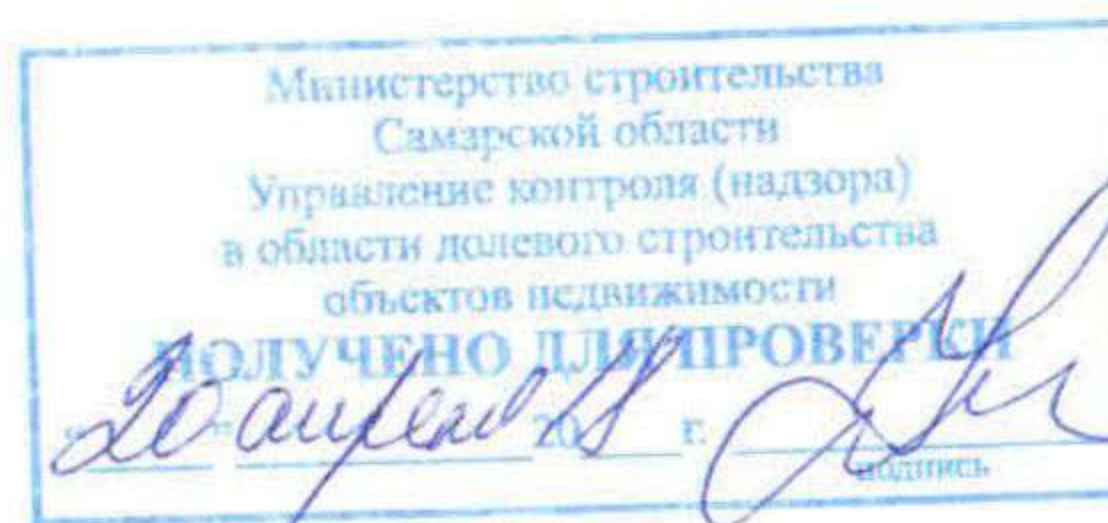 Министерство строительства
Самарской области
Управление контроля (надзора)
в области долевого строительства
объектов недвижимости
ПОЛУЧЕНО ДЛЯ ПРОВЕРКИ
"20" апреля 2018 г.
подпись